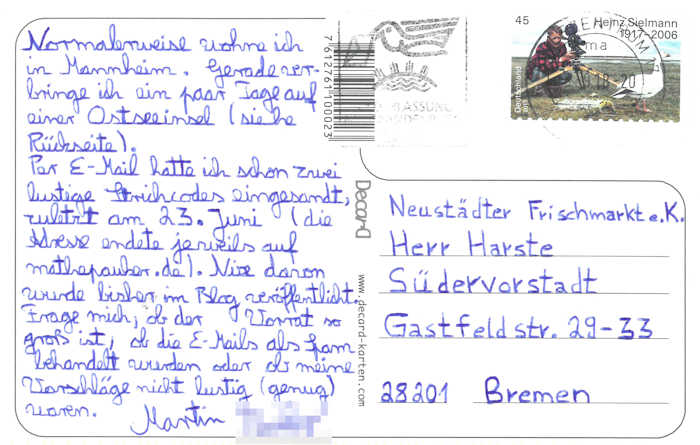 Normalerweise wohne ich
in Mannheim. Gerade ver-
bringe ich ein paar Tage auf
einer Ostseeinsel (siehe
Rückseite).
Per E-Mail hatte ich schon zwei
lustige Strichcodes eingesandt,
zuletzt am 23. Juni (die
Adresse endete jeweils auf
mathepauker.de). Nix davon
wurde bisher im Blog veröffentlicht.
Frage mich, ob der Vorrat so
groß ist, ob die E-Mails als Spam
behandelt wurden oder ob meine
Vorschläge nicht lustig (genug)
waren.
Martin
7612761100023
45
Heinz Sielmann
1917-2006
Deutschland
Decard
www.decard-karten.com
Neustädter Frischmarkt e.K.
Herr Harste
Südervorstadt
Gastfeldstr. 29-33
28201 Bremen